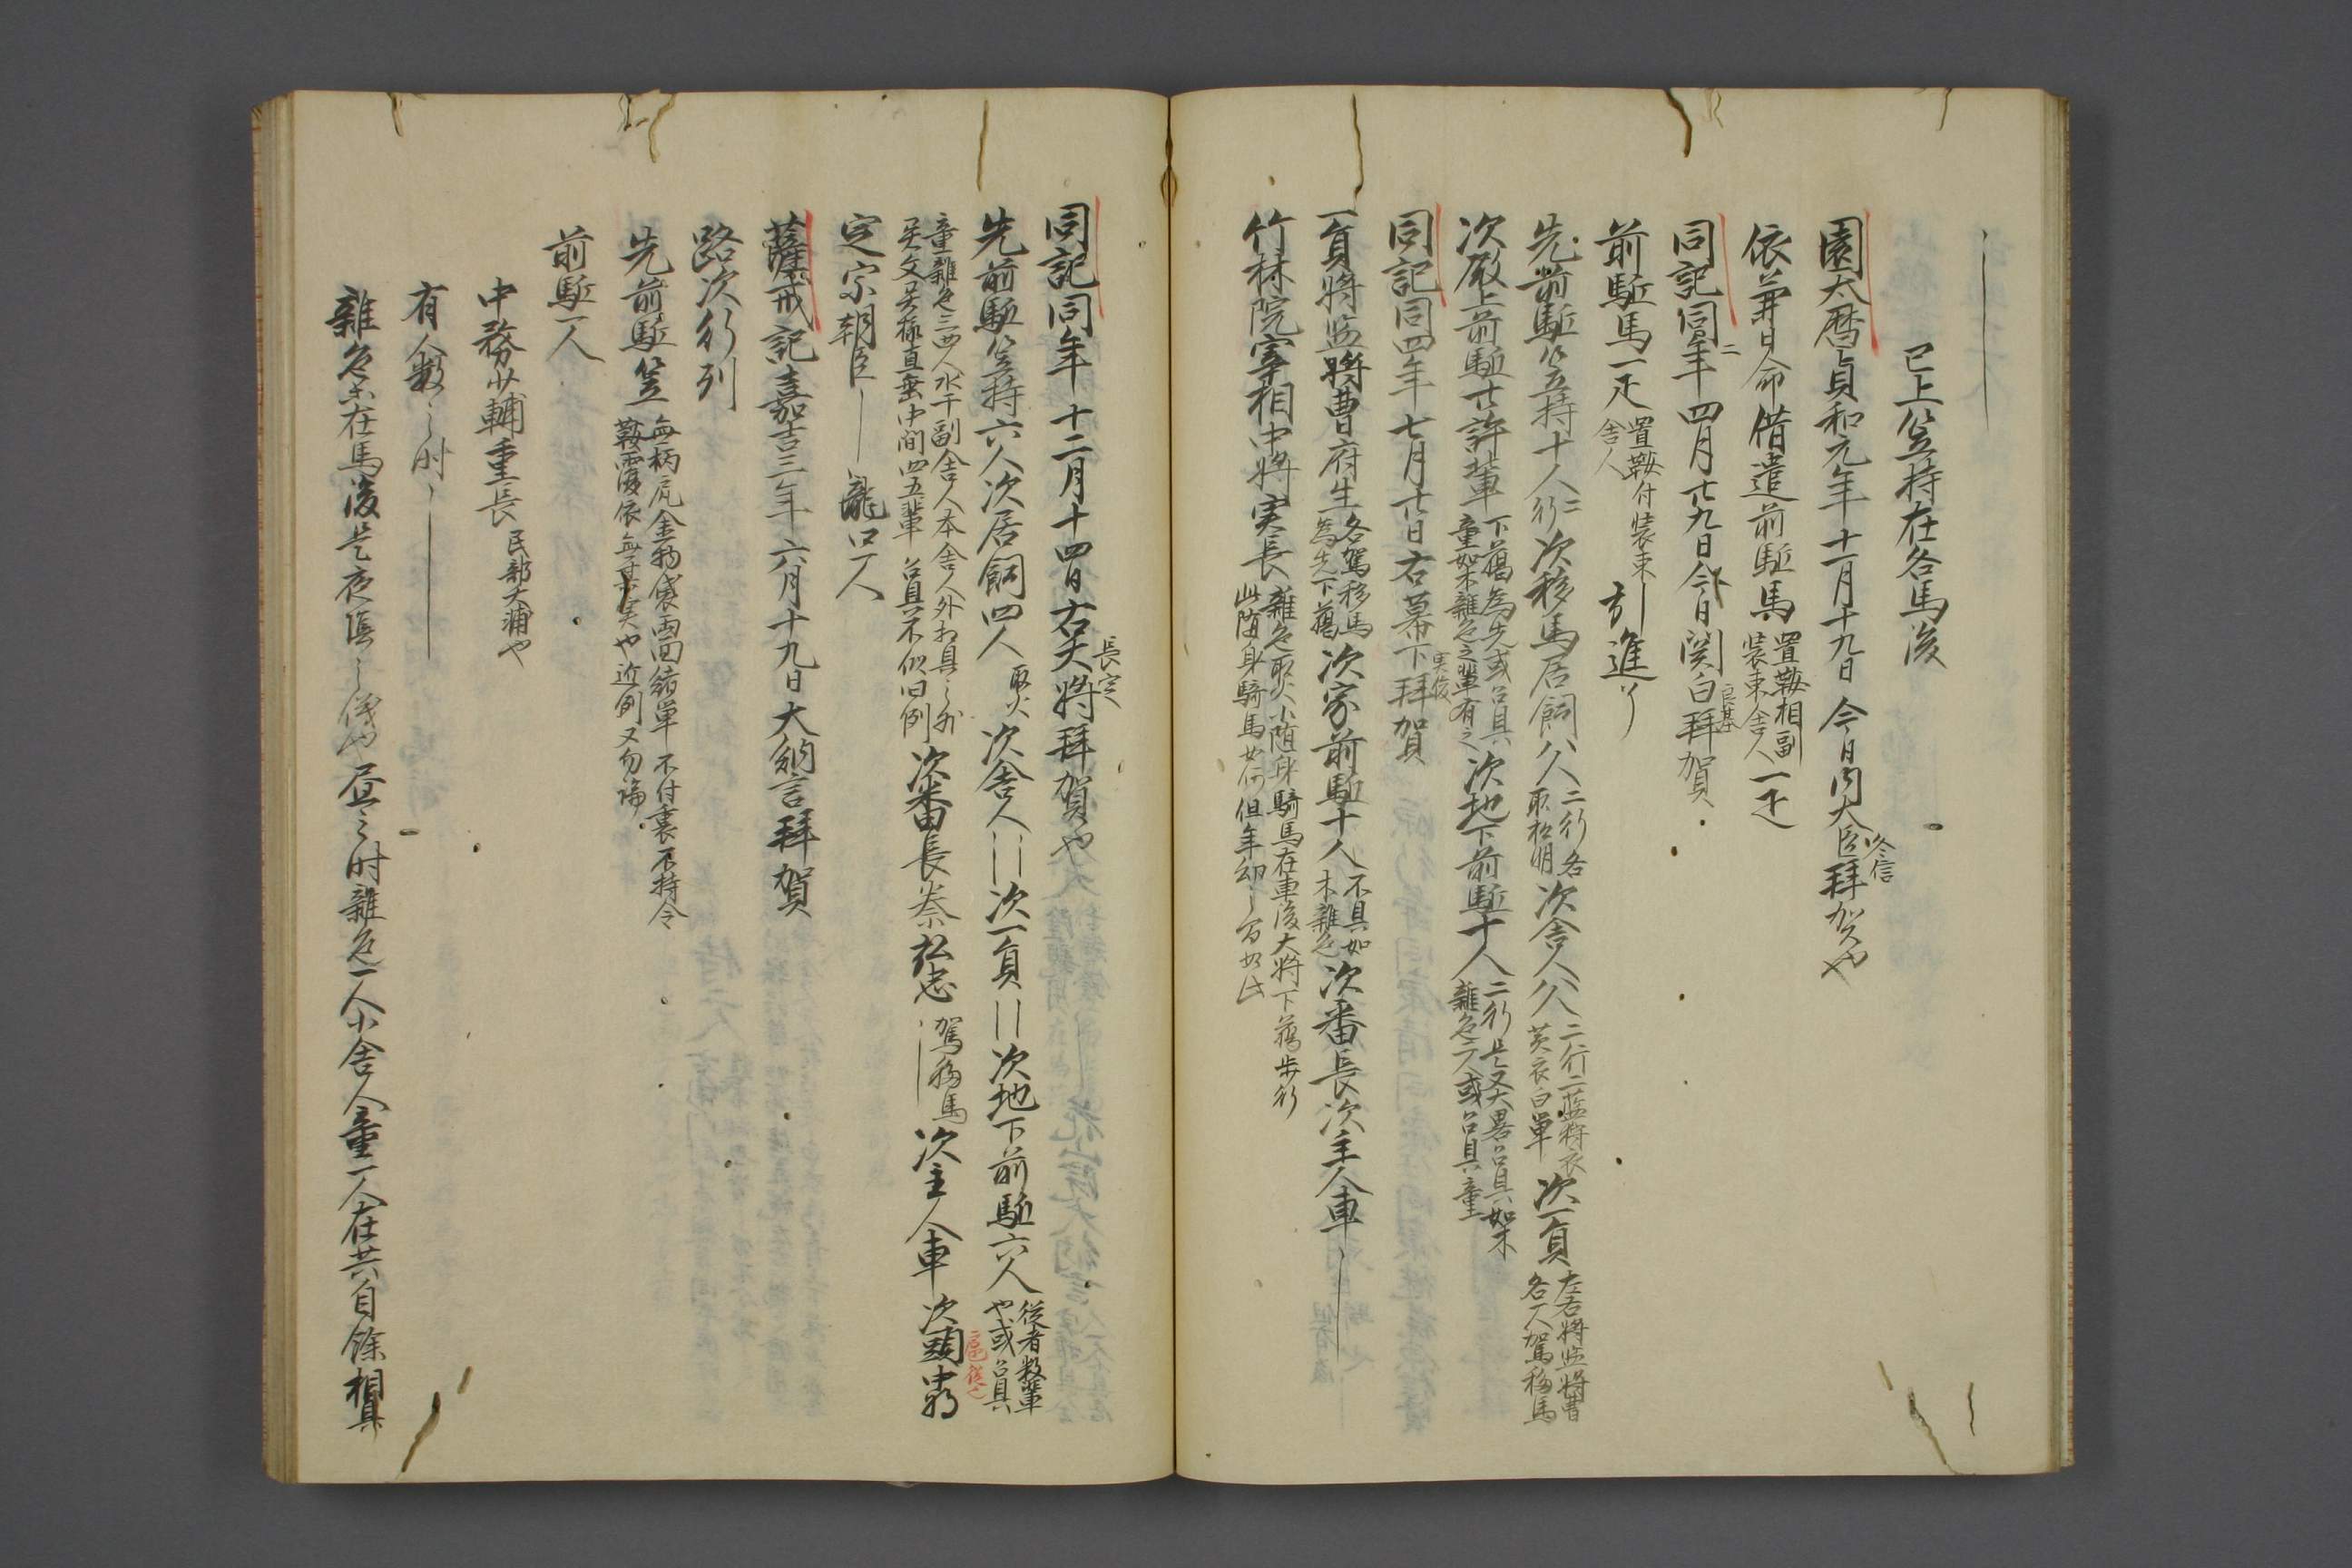 已上笠持在各馬後
園太暦貞和元年十一月十九日今日内大臣冬信拜賀也
依兼日命借遣前駈馬置鞍相副装束舎人一疋
同記同二年四月廿九日今日関白良基拜賀
前駈馬一疋置鞍付装束舎人引進了
先前駈笠持十人二行次移馬居飼八人二行各取松明次舎人八人二行二藍狩衣黄衣白単次一員左右将監将曹各一人駕移馬
次殿上前駈廿許輩下﨟為先或召具童如木雑色之輩有之次地下前駈十人二行是又大略召具如木雑色一人或召具童
同記同四年七月廿日右幕下実俊拜賀
一員将監将曹府生各駕移馬為先下﨟次家前駈十人不具如木雑色次番長次主人車
竹林院宰相中将実長雑色取火小随身騎馬在車後大将下﨟歩行此随身騎馬如何但年幼之間如此
同記同年十二月十四日右大将長定拜賀也
先前駈笠持六人次居飼四人取火次舎人次一員次地下前駈六人従者数輩也或召具
童雑色三四人水干副舎人本舎人外相具之外直垂中間四五輩召具不似旧例次番長秦弘忠駕移馬次主人車次頭中将扈従之
定宗朝臣 瀧口一人
薩戒記嘉吉三年六月十九日大納言拜賀
路次行列
先前駈笠無柄尻金物袋両面縮単不付裏不持令鞍覆依無其実也近例又勿論
前駈一人
中務少輔重長民部大輔也
有人数之時
雑色等在馬後是夜陰之儀也昼之時雑色一人小舎人童一人在共自餘相具